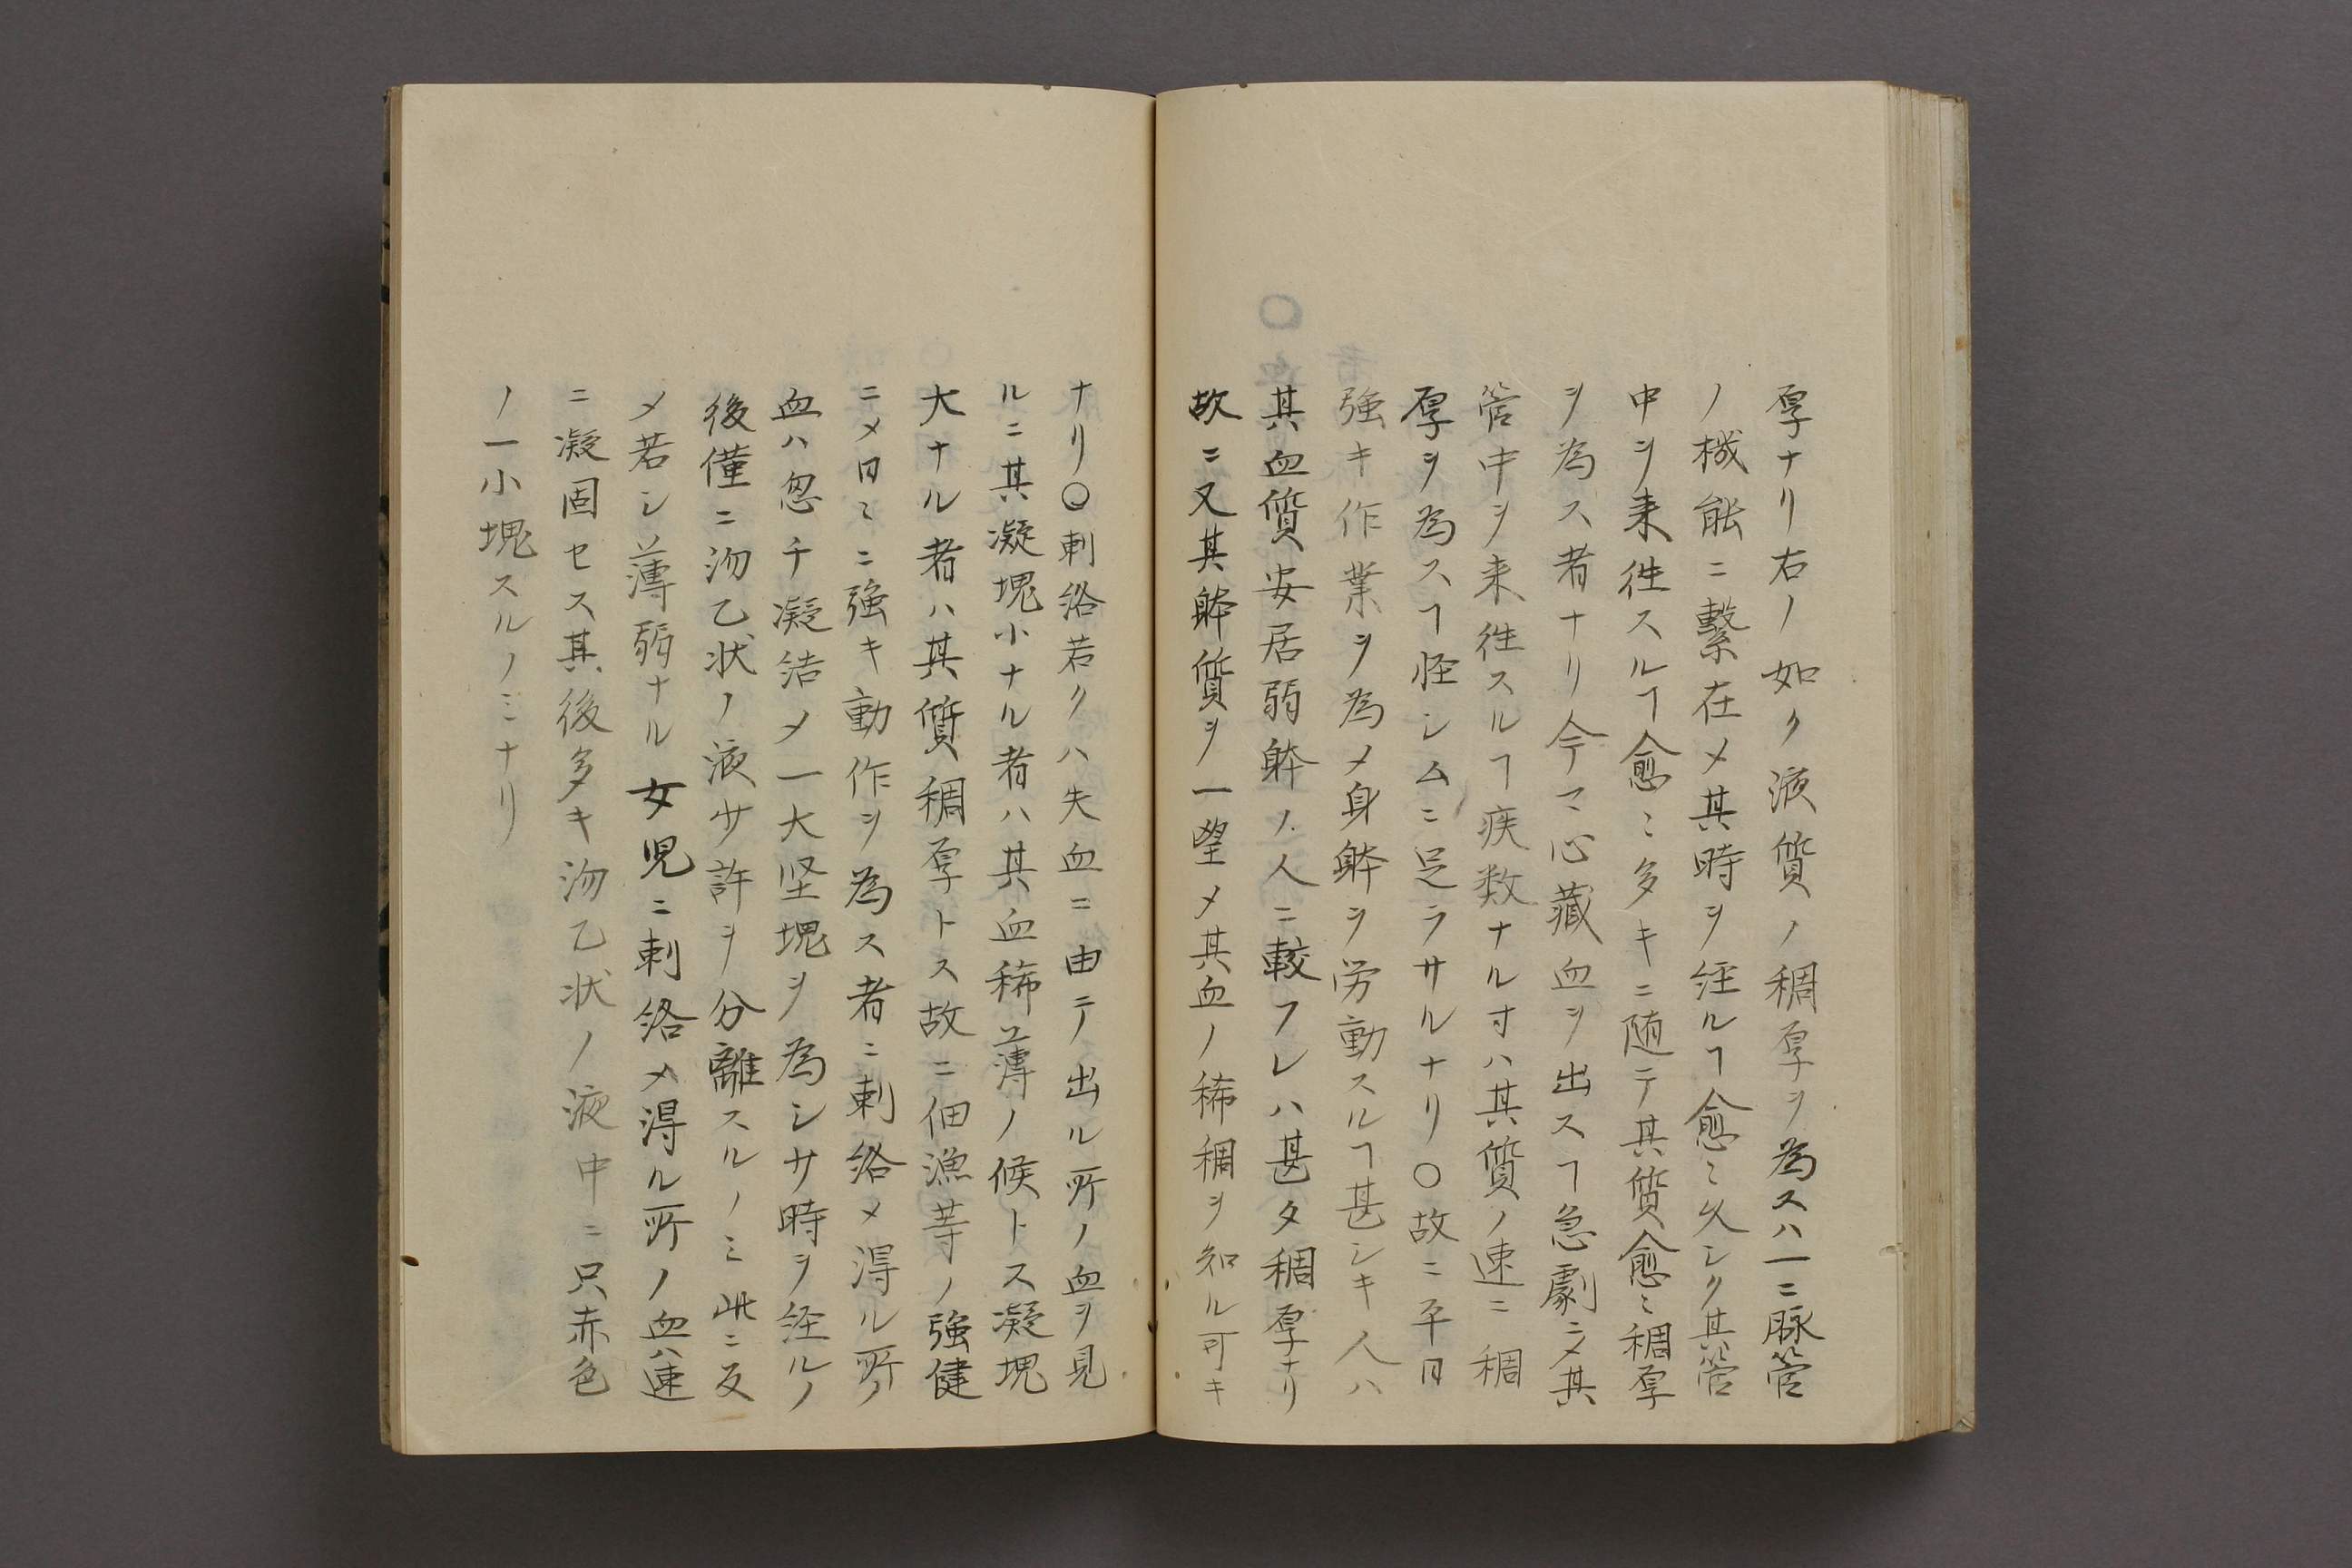 厚ナリ右ノ如ク液質ノ稠厚ヲ為スハ一ニ脈管
ノ機能ニ繋在メ其時ヲ経ルヿ愈〻久シク其管
中ヲ来徃スルヿ愈〻多キニ随テ其質愈〻稠厚
ヲ為ス者ナリ今マ心藏血ヲ出スヿ急劇ニメ其
管中ヲ来徃スルヿ疾数ナル寸ハ其質ノ速ニ稠
厚ヲ為スヿ怪シムニ足ラサルナリ〇故ニ平日
強キ作業ヲ為メ身躰ヲ労動スルヿ甚シキ人ハ
其血質安居弱躰ノ人ニ較フレハ甚タ稠厚ナリ
故ニ又其躰質ヲ一望メ其血ノ稀稠ヲ知ル可キ
ナリ〇刺絡若クハ失血ニ由テ出ル所ノ血ヲ見
ルニ其凝塊小ナル者ハ其血稀薄ノ候トス凝塊
大ナル者ハ其質稠厚トス故ニ佃漁等ノ強健
ニメ日〻ニ強キ動作ヲ為ス者ニ刺絡メ得ル所ノ
血ハ忽チ凝結メ一大堅塊ヲ為シサ時ヲ経ルノ
後僅ニ沕乙状ノ液少許ヲ分離スルノミ此ニ反
メ若シ薄弱ナル女児ニ刺絡メ得ル所ノ血ハ速
ニ凝固セス其後多キ沕乙状ノ液中ニ只赤色
ノ一小塊スルノミナリ